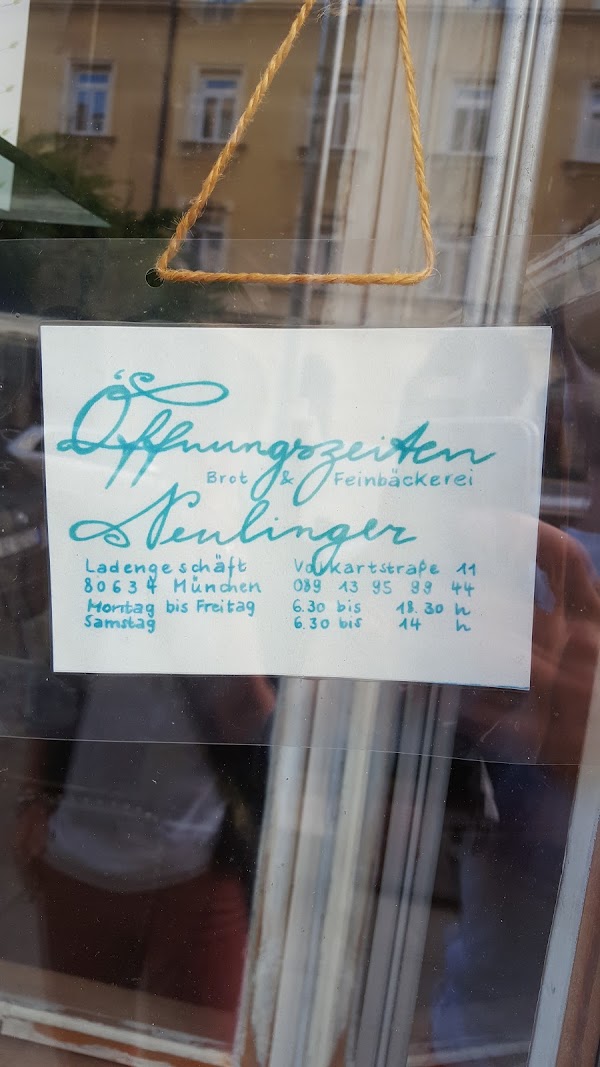 Öffnungszeiten
Brot & Feinbäckerei
Neulinger
Ladengeschäft Volkartstraße 11
80634 München 089 13 95 99 44
Montag bis Freitag 6.30 bis 18.30 h
Samstag 6.30 bis 14 h